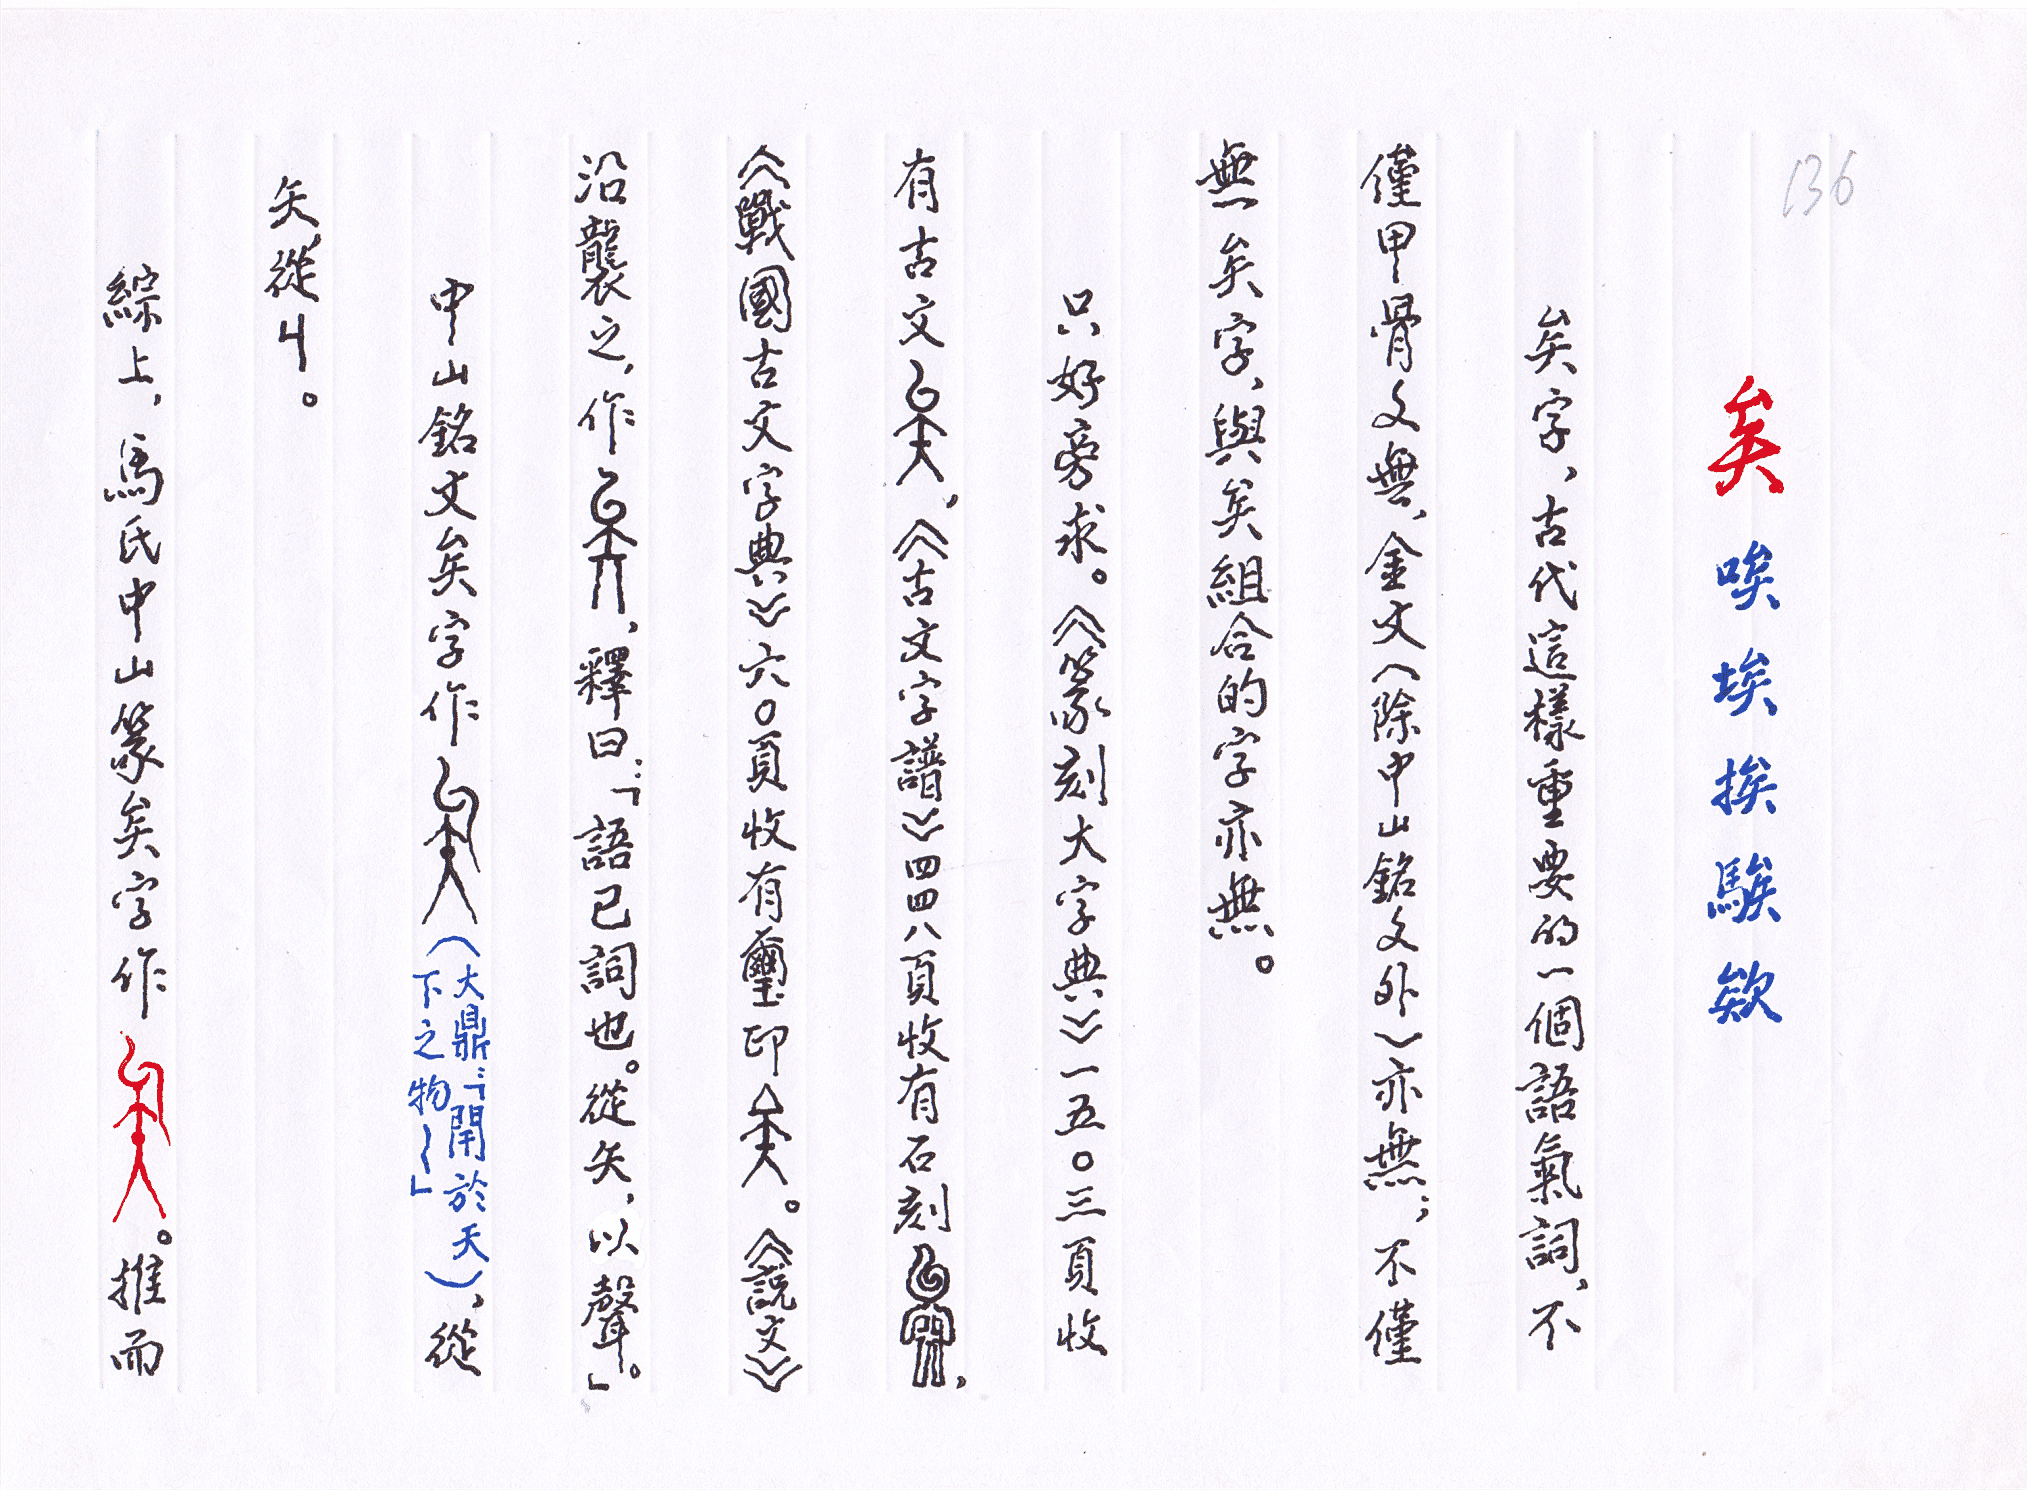 136
矣 唉 埃 挨 騃 欸
矣字、古代這樣重要的一個語氣詞、不
僅甲骨文無、金文（除中山銘文外）亦無；不僅
無矣字、與矣組合的字亦無。
只好旁求。《篆刻大字典》一五〇三頁收
有古文，《古文字譜》四四八頁收有石刻，
《戰國古文字典》六〇頁收有璽印。《説文》
沿襲之，作，釋曰：「語已詞也。從矢，以聲。」
中山銘文矣字作（大鼎：「閈於天下之物～～」），從
矢、從丩。
綜上，馬氏中山篆矣字作。推而